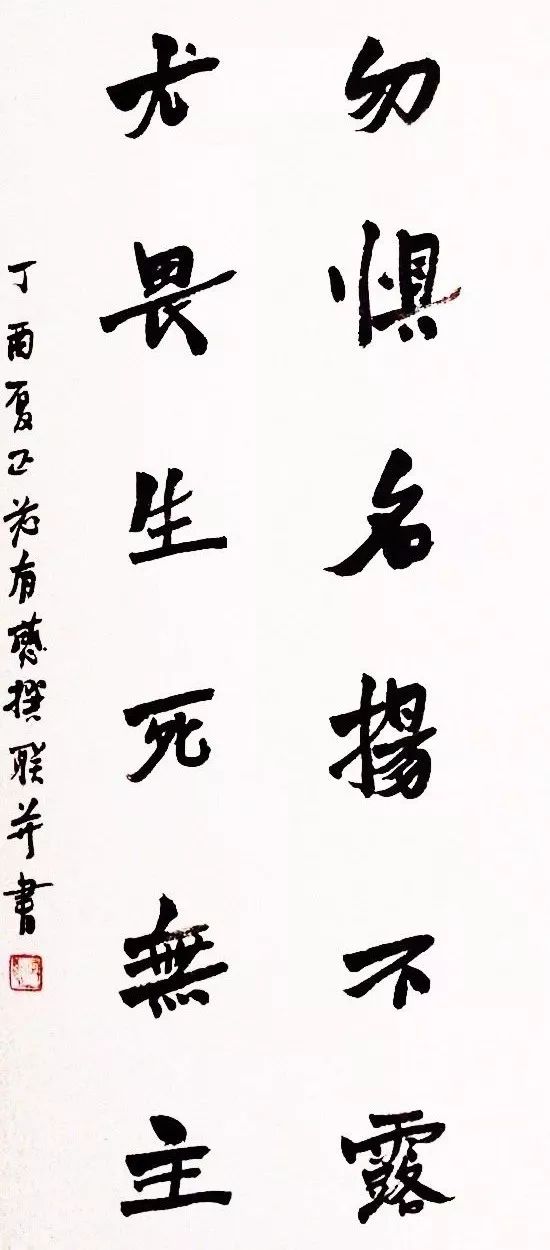 勿懼名揚不露
尤畏生死無主
丁酉夏正光有感撰聯并書